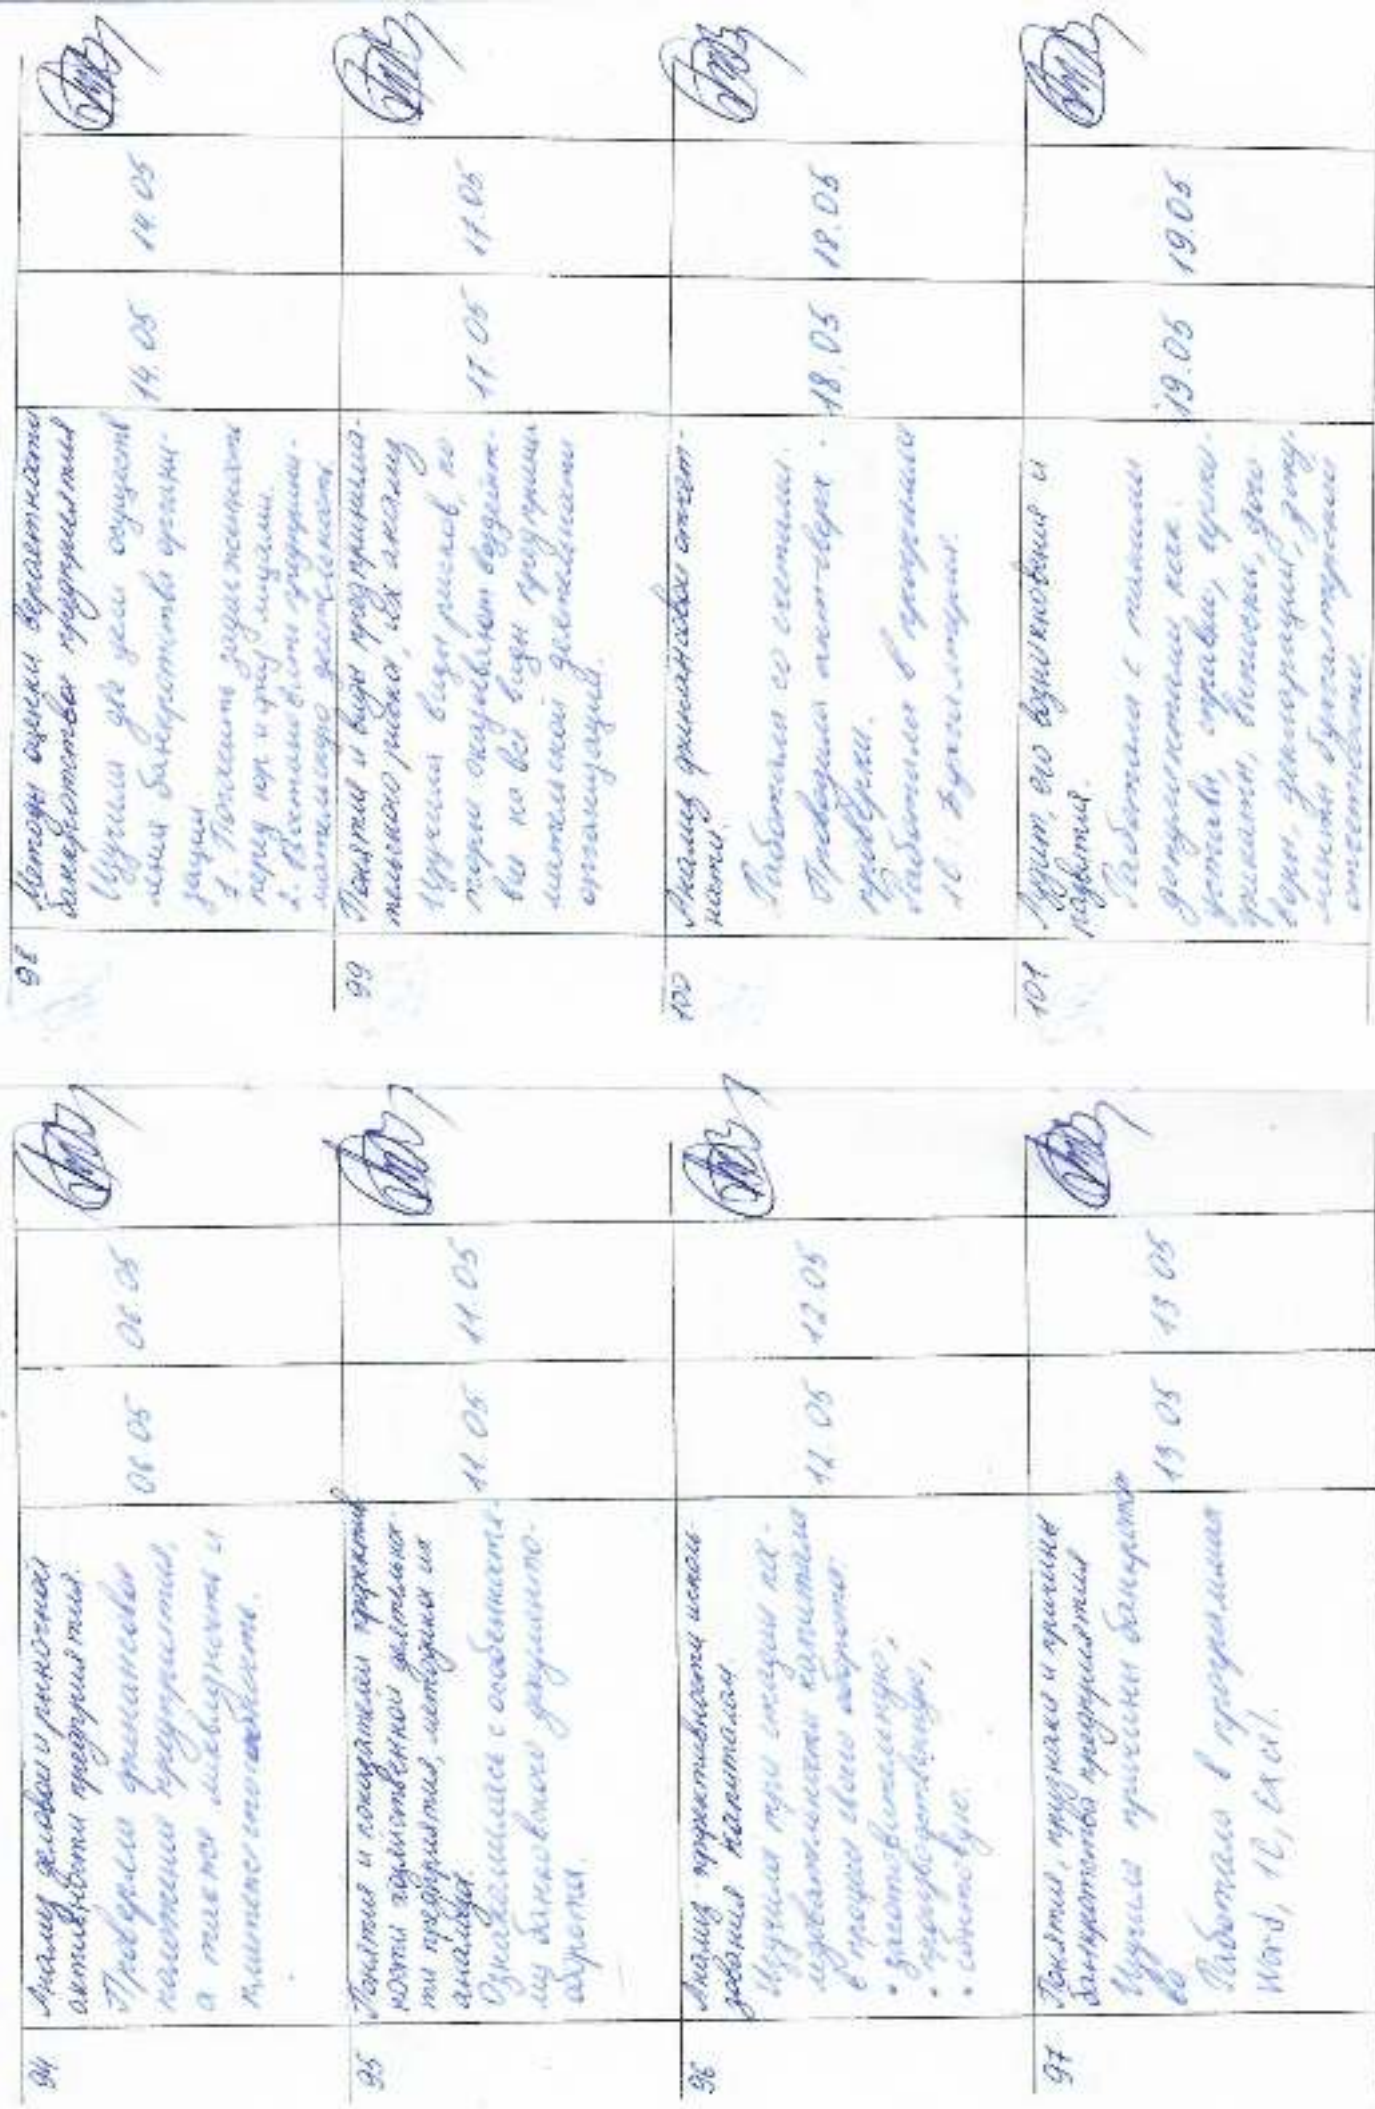 94
Анализ деловой и рыночной
активности предприятия.
Проверили финансовое
состояние предприятия,
а также ликвидность и
платежеспособность.
06.05
06.05
95
Понятия и показатели эффектив
ности хозяйственной деятельнос-
ти предприятия, методики их
анализа.
Ознакомилась с особенностя-
ми банковского документо-
оборота.
11.05
11.05
96
Анализ эффективности исполь-
зования капитала.
Изучили при стадии
капитала
в процессе своего оборота:
• заготовительную,
• производственную,
• сбытовую.
12.05
12.05
97
Понятия, признаки и причины
банкротства предприятия
Изучила причины банкротст
ва
Работала в программах
Word, 1С, Excel.
13 05
13 05
98
Методы оценки вероятности
банкротства предприятия
Изучили две цели осуществ
ления банкротства органи-
зации
1. Погасить задолженность
перед юр и физ лицами.
2. Восстановить предприни-
мательскую деятельность
14.05
14.05
99
Понятия и виды предпринима-
тельского риска, их анализ
Изучила виды рисков, ко
торые оказывают воздейст-
вие на все виды предприни
мательской деятельности
организаций.
17.05
17.05
100
Анализ финансовой отчет-
ности.
Работала со счетами.
Проводила акт сверх.
проверки.
Работала в программе
1С: Бухгалтерия.
18.05
18.05
101
Аудит, его возникновения и
развития.
Работала с такими
документами как:
уставы, справки, при-
казы, выписки, дого
воры, декларации, доку
менты бухгалтерской
отчетности.
19.05
19.05